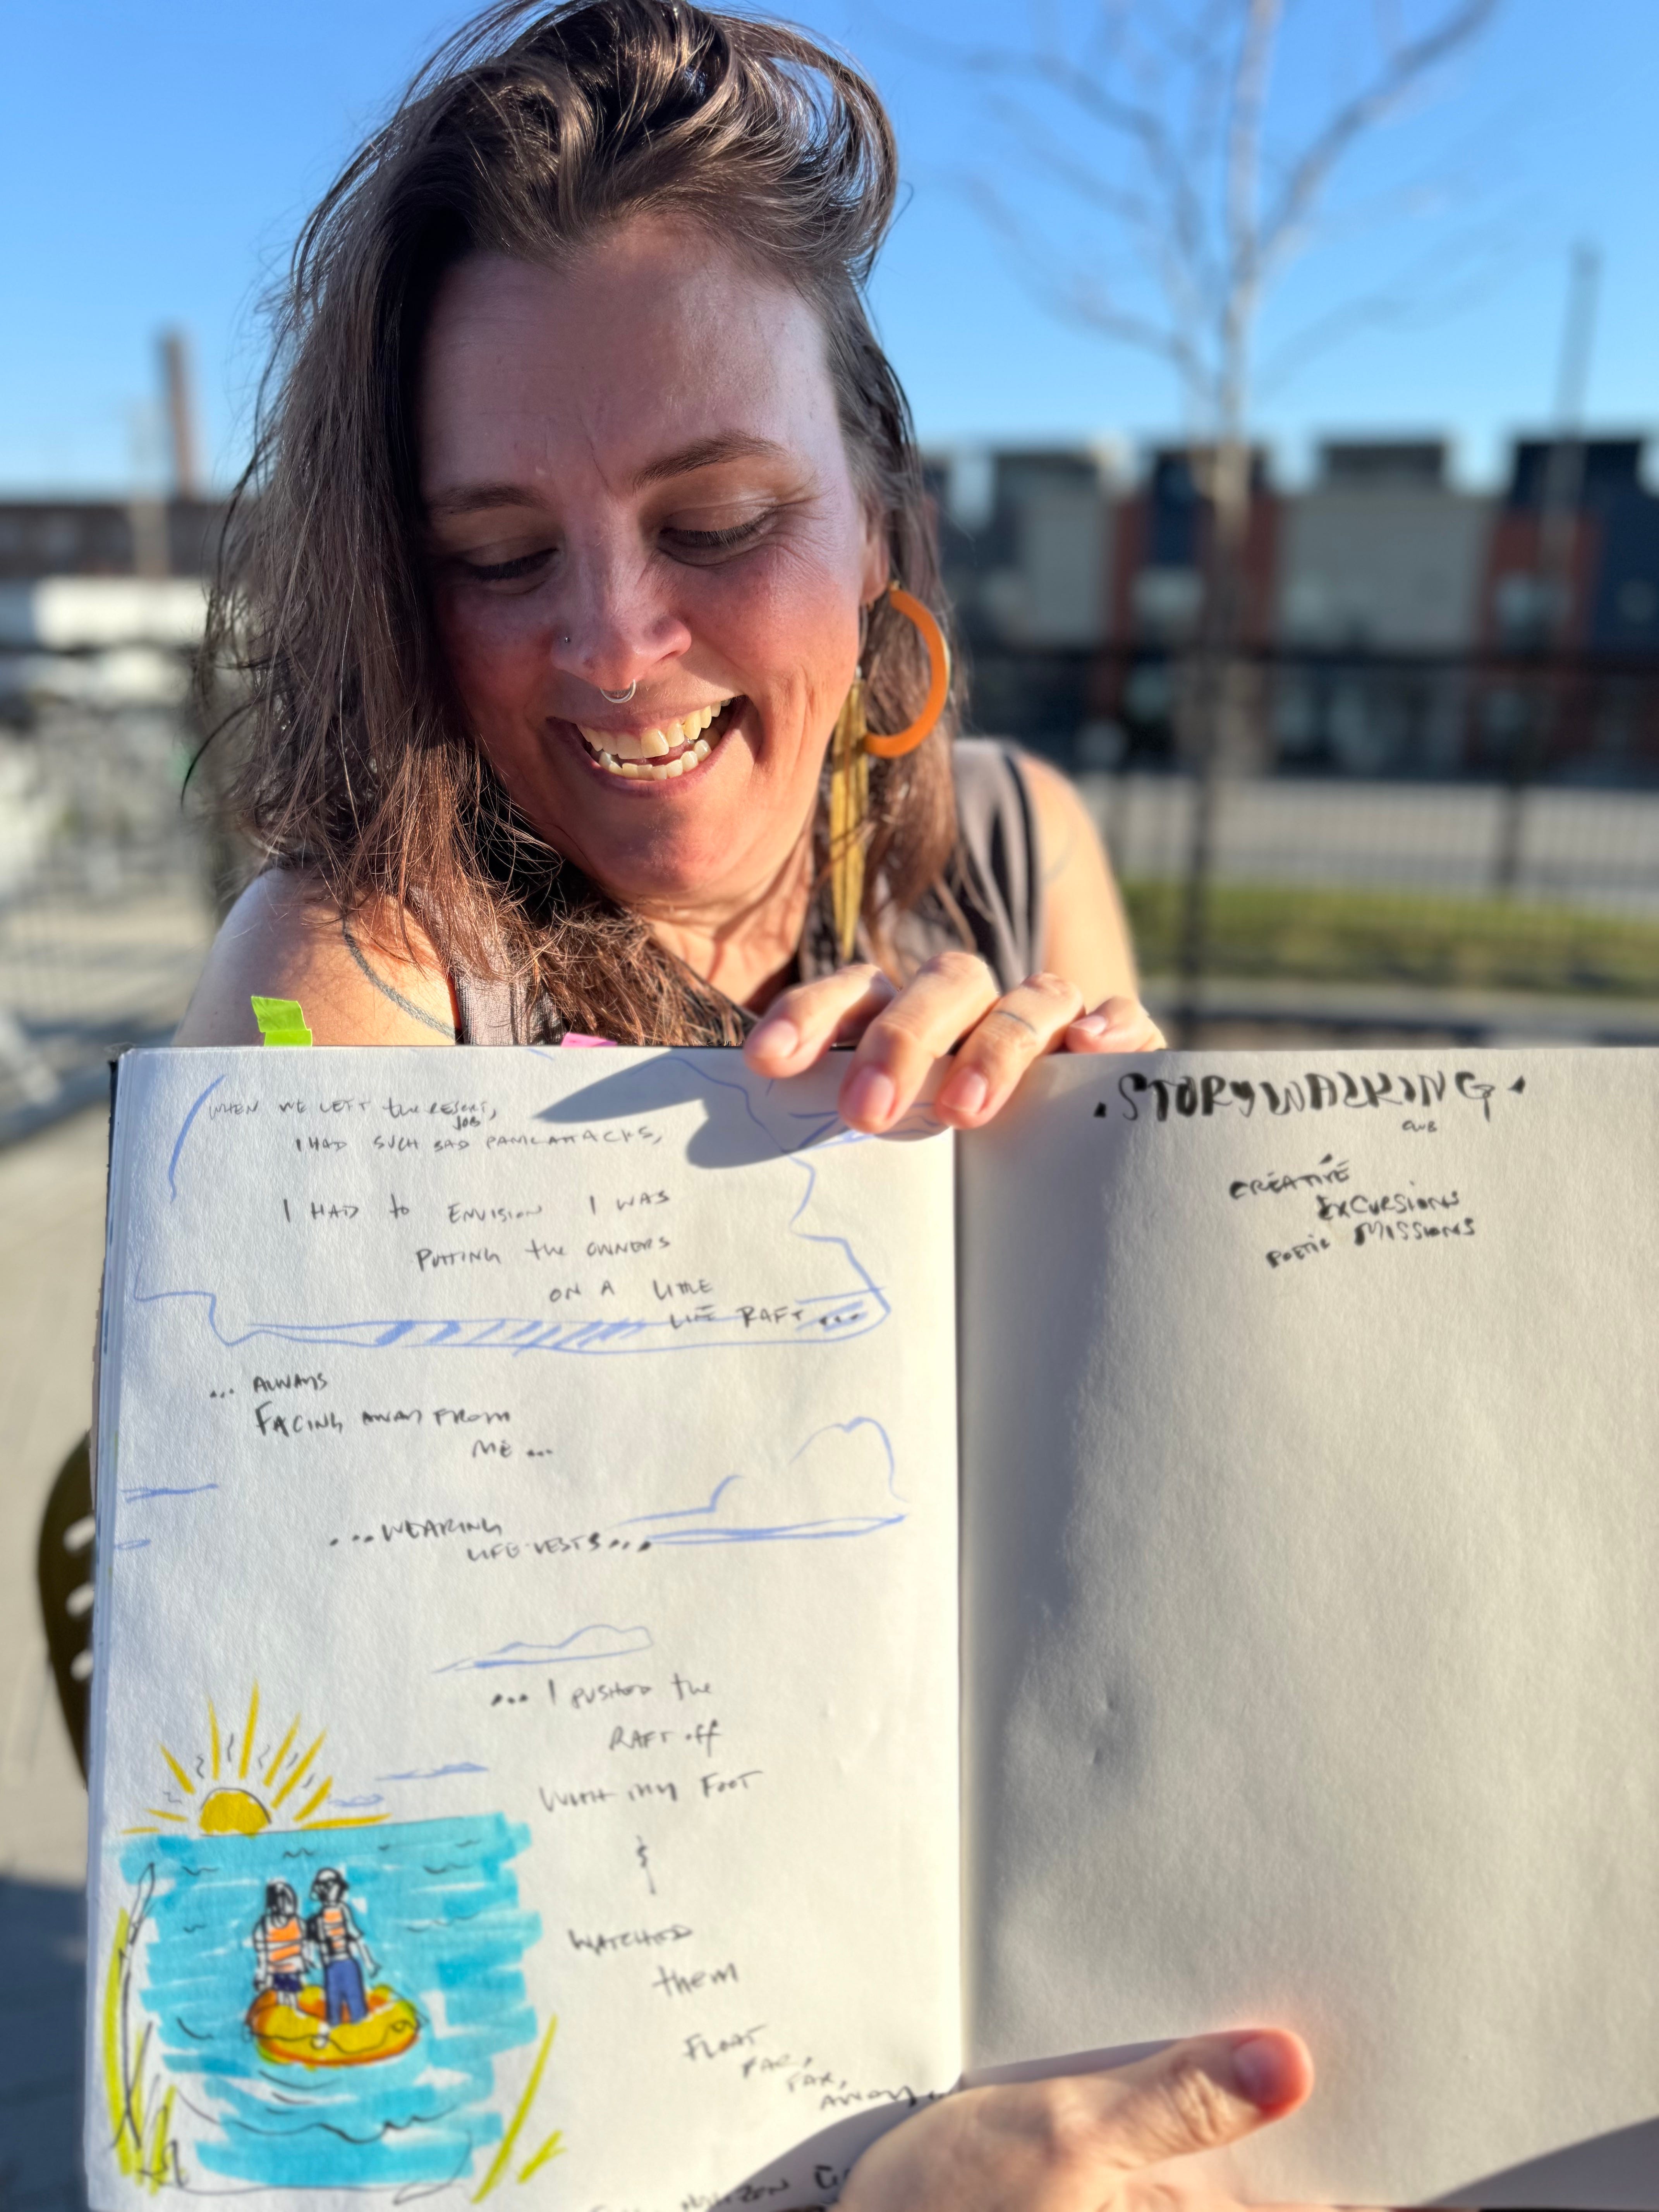 WHEN WE LEFT the RESORT,
JOB
I HAD SUCH BAD PANIC ATTACKS,
I HAD to ENVISION I WAS
PUTTING the OWNERS
ON A LITTLE
LIFE RAFT...
... ALWAYS
FACING AWAY FROM
ME ...
...WEARING
LIFE-VESTS...
... I PUSHED the
RAFT off
WITH MY FOOT
&
WATCHED
them
FLOAT
FAR,
FAR,
AWAY
.STORYWALKING.
CLUB
CREATIVE
EXCURSIONS
POETIC MISSIONS